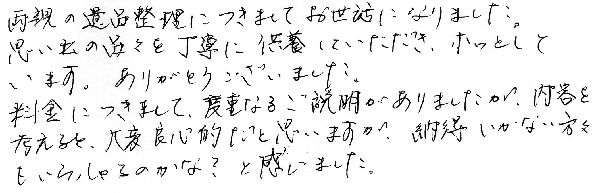 両親の遺品整理につきましてお世話になりました。
思い出の品々を丁寧に供養していただき、ホッとして
います。ありがとうございました。
料金につきまして、度重なるご説明がありましたが、内容を
考えると、大変良心的だと思いますが、納得いかない方々
もいらっしゃるのかな？と感じました。